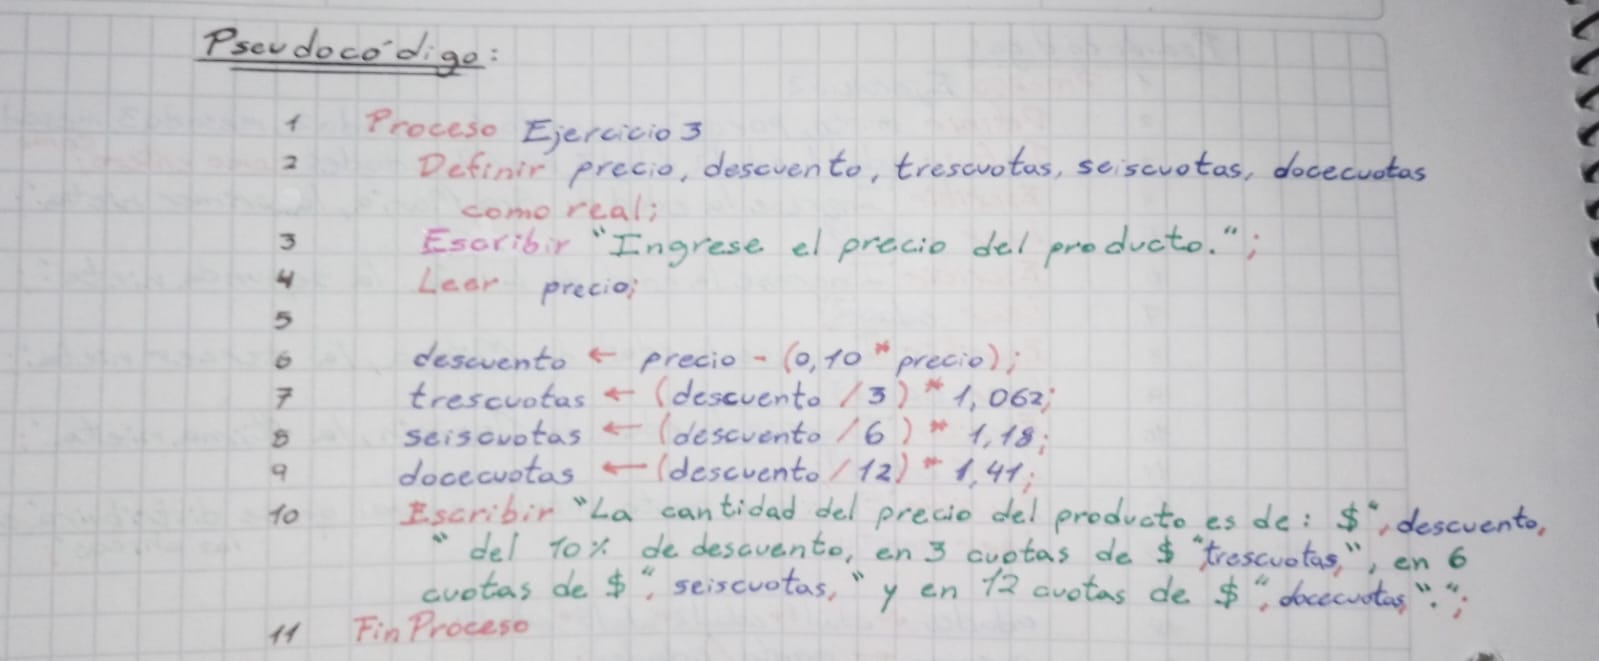 Pseudocódigo:
1 Proceso Ejercicio 3
2 Definir precio, descuento, trescuotas, seiscuotas, docecuotas
como real;
3 Escribir "Ingrese el precio del producto.";
4 Leer precio;
5
6 descuento ← precio - (0,10 * precio);
7 trescuotas ← (descuento / 3) * 1,062;
8 seiscuotas ← (descuento / 6) * 1,18;
9 docecuotas ← (descuento / 12) * 1,41;
10 Escribir "La cantidad del precio del producto es de: $", descuento,
" del 10% de descuento, en 3 cuotas de $ ", trescuotas, ", en 6
cuotas de $", seiscuotas, " y en 12 cuotas de $", docecuotas, ".";
11 FinProceso